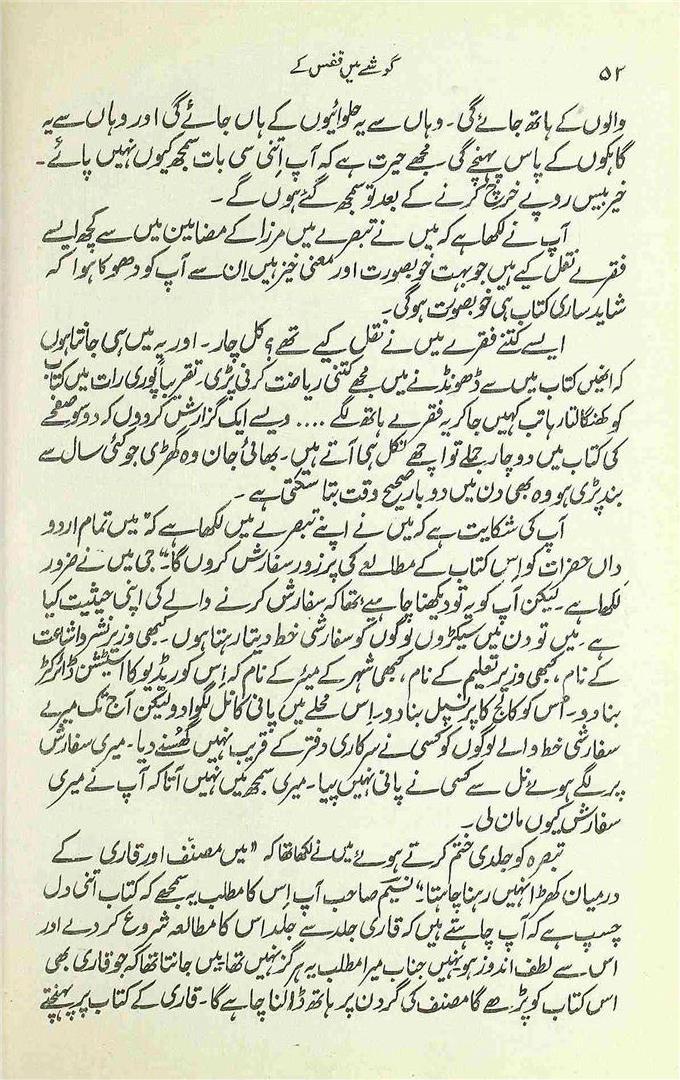 ۵۲
گوشے میں قفس کے
والوں کے ہاتھ جائے گی۔ وہاں سے یہ حلوائیوں کے ہاں جائے گی اور وہاں سے یہ
گاہکوں کے پاس پہنچے گی مجھے حیرت ہے کہ آپ اتنی سی بات سمجھ کیوں نہیں پائے۔
خیر بیس روپے خرچ کرنے کے بعد تو سمجھ گئے ہوں گے۔
آپ نے لکھا ہے کہ میں نے تبصرے میں مرزا کے مضامین میں سے کچھ ایسے
فقرے نقل کیے ہیں جو بہت خوبصورت اور معنی خیز ہیں اِن سے آپ کو دھوکا ہوا کہ
شاید ساری کتاب ہی خوبصورت ہوگی۔
ایسے کتنے فقرے میں نے نقل کیے تھے؟ کل چار۔ اور یہ میں ہی جانتا ہوں
کہ انھیں کتاب میں سے ڈھونڈنے میں مجھے کتنی ریاضت کرنی پڑی۔ تقریباً پوری رات میں کتاب
کو کھنگالتا رہا تب کہیں جا کر یہ فقرے ہاتھ لگے .... ویسے ایک گزارش کردوں کہ دو سو صفحے
کی کتاب میں دو چار جملے تو اچھے نکل ہی آتے ہیں۔ بھائی جان وہ گھڑی جو کئی سال سے
بند پڑی ہو وہ بھی دن میں دو بار صحیح وقت بتا سکتی ہے۔
آپ کی شکایت ہے کہ میں نے اپنے تبصرے میں لکھا ہے کہ "میں تمام اردو
داں حضرات کو اِس کتاب کے مطالعے کی پرزور سفارش کروں گا۔" جی میں نے ضرور
لکھا ہے۔ لیکن آپ کو یہ تو دیکھنا چاہیے تھا کہ سفارش کرنے والے کی اپنی حیثیت کیا
ہے۔ میں تو دن میں سیکڑوں لوگوں کو سفارشی خط دیتا رہتا ہوں۔ کبھی وزیر نشر و اشاعت
کے نام، کبھی وزیر تعلیم کے نام، کبھی شہر کے میئر کے نام کہ اِس کو ریڈیو کا اسٹیشن ڈائرکٹر
بنا دو۔ اُس کو کالج کا پرنسپل بنا دو۔ اِس محلے میں پانی کا نل لگوا دو لیکن آج تک میرے
سفارشی خط والے لوگوں کو کسی نے سرکاری دفتر کے قریب نہیں گھسنے دیا۔ میری سفارش
پر لگے ہوئے نل سے کسی نے پانی نہیں پیا۔ میری سمجھ میں نہیں آتا کہ آپ نے میری
سفارش کیوں مان لی۔
تبصرہ کو جلدی ختم کرتے ہوئے میں نے لکھا تھا کہ "میں مصنّف اور قاری کے
درمیان کھڑا نہیں رہنا چاہتا۔" نسیم صاحب آپ اِس کا مطلب یہ سمجھے کہ کتاب اتنی دل
چسپ ہے کہ آپ چاہتے ہیں کہ قاری جلد سے جلد اس کا مطالعہ شروع کر دے اور
اس سے لطف اندوز ہو نہیں جناب میرا مطلب یہ ہرگز نہیں تھا میں جانتا تھا کہ جو قاری بھی
اس کتاب کو پڑھے گا مصنف کی گردن پر ہاتھ ڈالنا چاہے گا۔ قاری کے کتاب پر پہنچتے